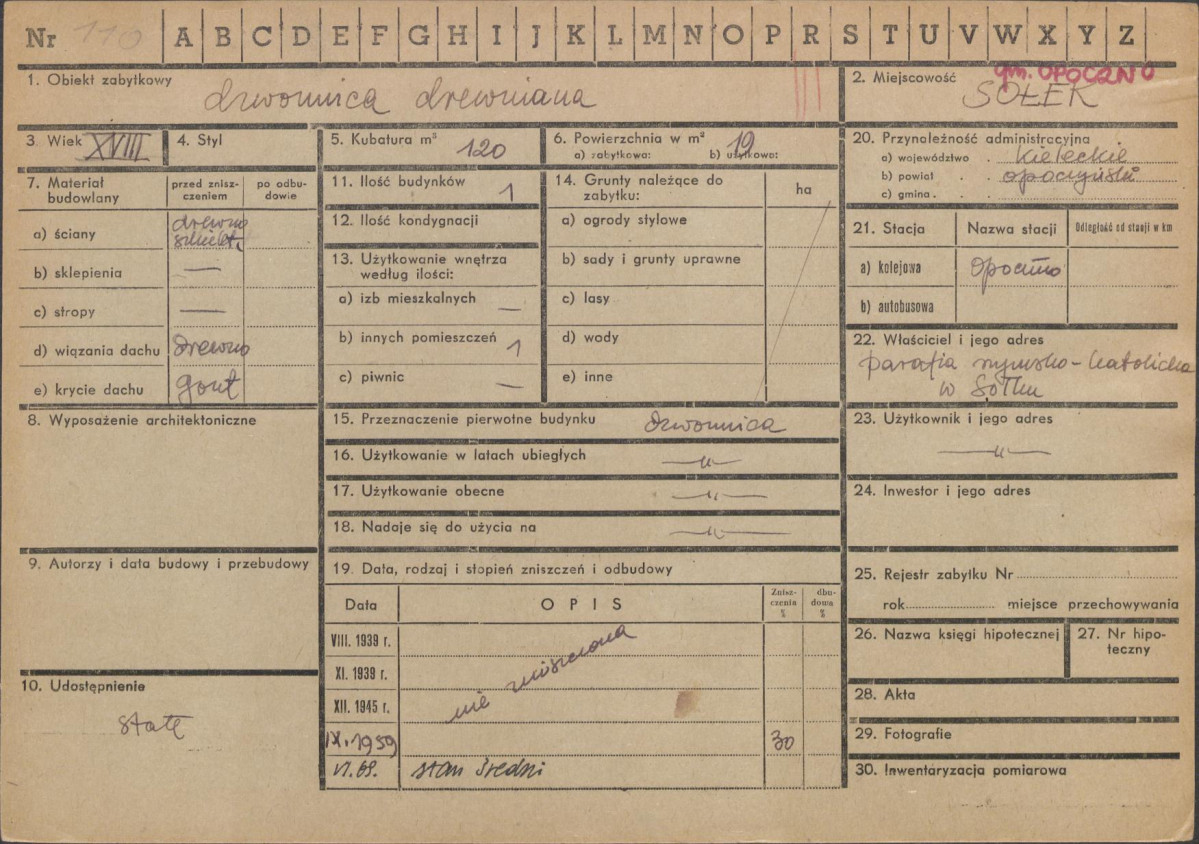 Nr 110 A B C D E F G H I J K L M N O P R S T U V W X Y Z
1. Obiekt zabytkowy
dzwonnica drewniana
2. Miejscowość
gm. OPOCZNO
SOŁEK
3. Wiek XVIII
4. Styl
5. Kubatura m³ 120
6. Powierzchnia w m² 19
a) zabytkowa: b) użytkowa:
7. Materiał budowlany
przed zniszczeniem
po odbudowie
a) ściany drewno
b) sklepienia —
c) stropy —
d) wiązania dachu drewno
e) krycie dachu gont
8. Wyposażenie architektoniczne
9. Autorzy i data budowy i przebudowy
10. Udostępnienie
stałe
11. Ilość budynków 1
12. Ilość kondygnacji
13. Użytkowanie wnętrza
według ilości:
a) izb mieszkalnych —
b) innych pomieszczeń 1
c) piwnic —
14. Grunty należące do
zabytku:
ha
a) ogrody stylowe
b) sady i grunty uprawne
c) lasy
d) wody
e) inne
15. Przeznaczenie pierwotne budynku dzwonnica
16. Użytkowanie w latach ubiegłych —„—
17. Użytkowanie obecne —„—
18. Nadaje się do użycia na —„—
19. Data, rodzaj i stopień zniszczeń i odbudowy
Data
OPIS
Zniszczenia %
dbudowa %
VIII. 1939 r.
XI. 1939 r.
XII. 1945 r.
nie zniszczona
IX. 1959 30
VI. 68. stan średni
20. Przynależność administracyjna
a) województwo . Kieleckie
b) powiat . . opoczyński
c) gmina . .
21. Stacja
Nazwa stacji
Odległość od stacji w km
a) kolejowa Opoczno
b) autobusowa
22. Właściciel i jego adres
parafia rzymsko-katolicka
w Sołku
23. Użytkownik i jego adres
—„—
24. Inwestor i jego adres
25. Rejestr zabytku Nr
rok miejsce przechowywania
26. Nazwa księgi hipotecznej
27. Nr hipoteczny
28. Akta
29. Fotografie
30. Inwentaryzacja pomiarowa